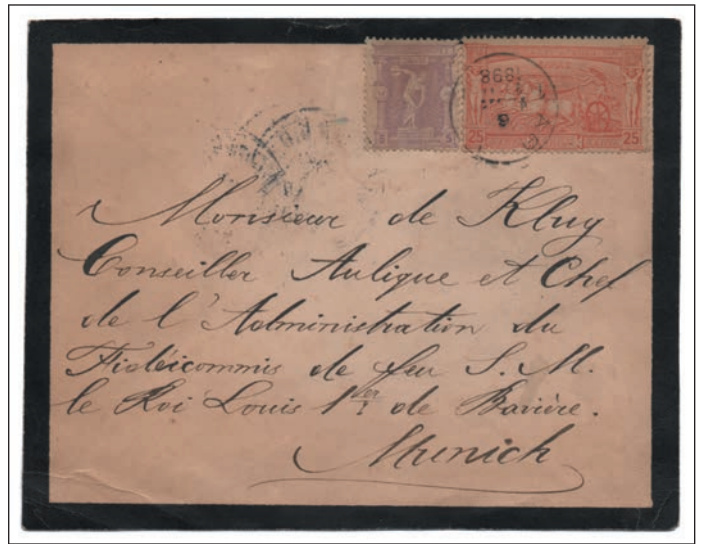 898
6
5
25 25
Monsieur de Klug
Conseiller Aulique et Chef
de l'Administration du
Fidéicommis de feu S. M.
le Roi Louis 1er de Bavière.
Munich